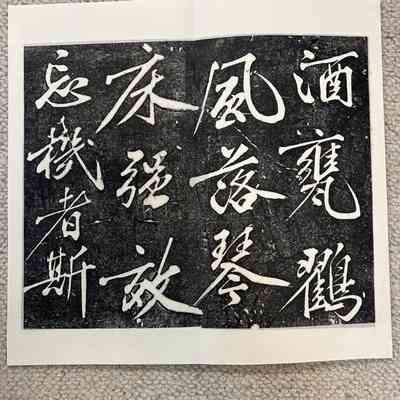 酒甕鸛
風落琴
床强效
忘機者斯